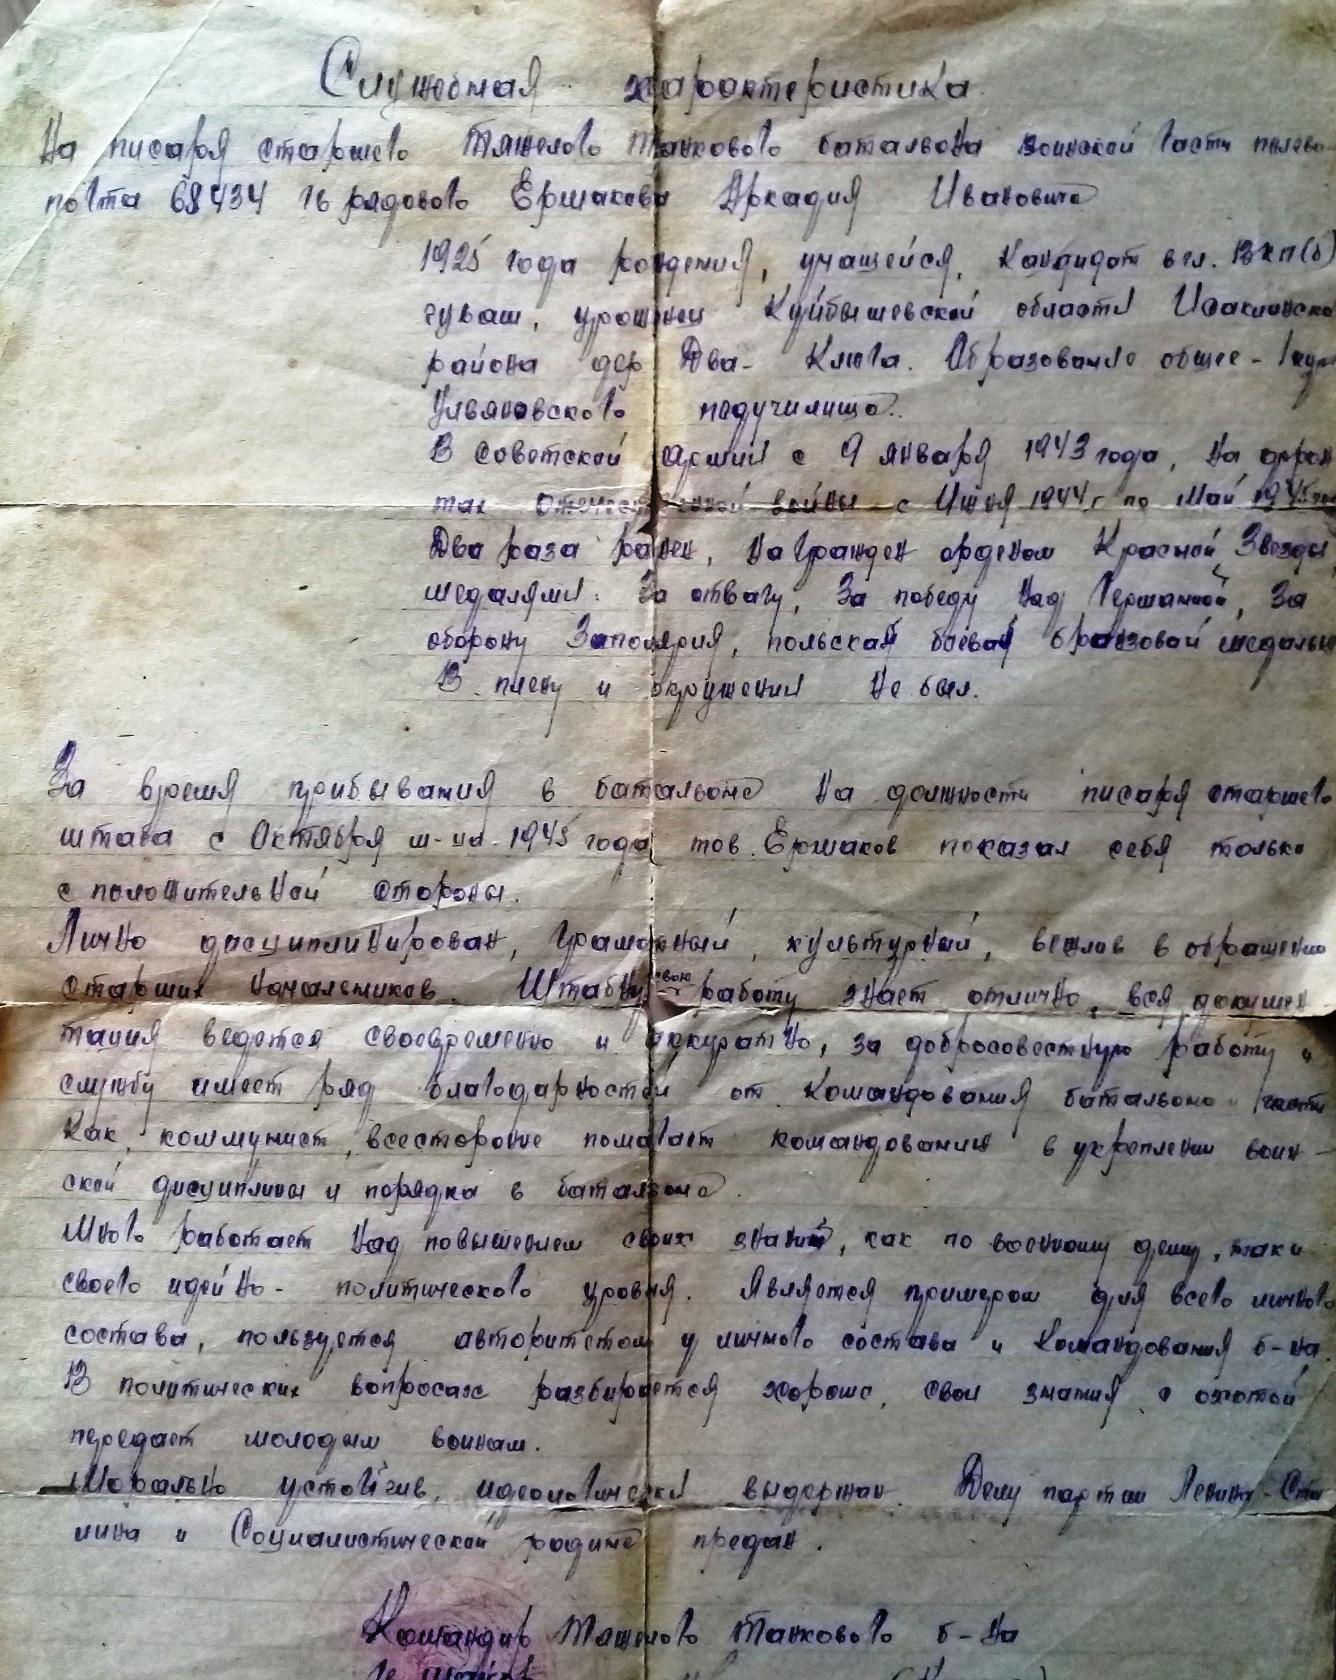 Служебная характеристика
На писаря старшего Тяжелого Танкового батальона воинской части полева
почта 68434 гв рядового Ермакова Аркадия Ивановича
1925 года рождения, учащейся, кандидат в чл. ВКП(б)
чуваш, урожнец Куйбышевской области Исаклинско
района дер Два- Ключа. Образование общее -
Ульяновского педучилища.
В советской армии с 9 января 1943 года, на фрон
тах Отечественной войны с Июня 1944 г. по Май 1945
Два раза ранен, награжден орденом Красной Звезды,
медалями: За отвагу, За победу над Германией, За
оборону Заполярия, польской боевой бронзовой медалью
В плену и окружении не был.
За время прибывания в батальоне на должности писаря старшего
штаба с Октября м-ца 1945 года тов. Ермаков показал себя только
с положительной стороны.
Лично дисциплинирован, грамотный, культурный, вежлив в обращении
старших начальников. Штабную свою работу знает отлично, вся докумен
тация ведется своевременно и аккуратно, за добросовестную работу и
службу имеет ряд благодарностей от Командования батальона и части
Как коммунист, всесторонне помагает командованию в укреплении воин-
ской дисциплины и порядка в батальоне.
Много работает над повышением своих знаний, как по военному делу, так и
своего идейно- политического уровня. Является примером для всего личного
состава, пользуется авторитетом у личного состава и Командования б-на.
В политических вопросах разбирается хорошо, свои знания с охотой
передает молодым воинам.
Морально устойчив, идеологически выдержан. Делу партии Ленина-Ста
лина и Социалистической родине предан.
Командир Тяжелого Танкового б-на